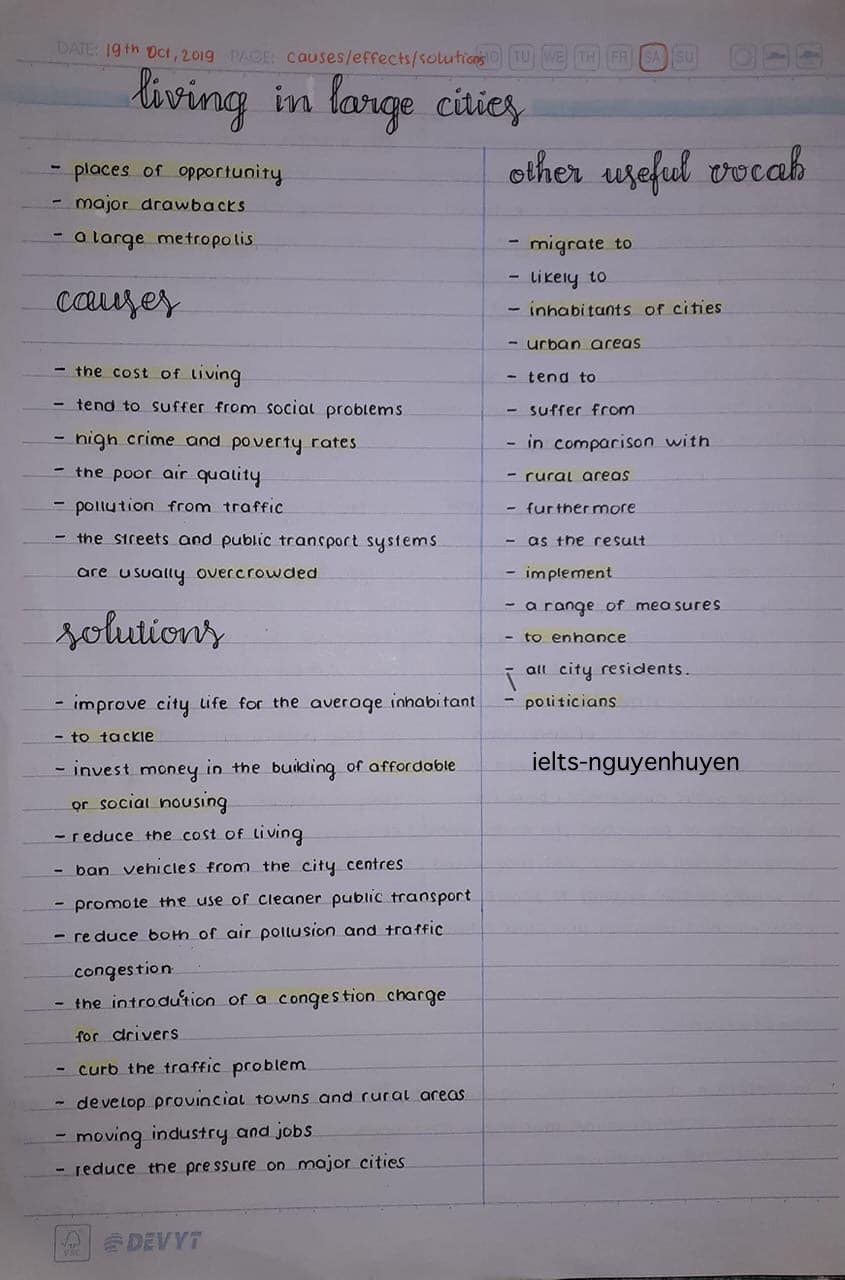 DATE: 19th Oct, 2019 PAGE: causes/effects/solutions MO TU WE TH FR SA SU
living in large cities
- places of opportunity
- major drawbacks
- a large metropolis
causes
- the cost of living
- tend to suffer from social problems
- high crime and poverty rates
- the poor air quality
- pollution from traffic
- the streets and public transport systems
are usually overcrowded
solutions
- improve city life for the average inhabitant
- to tackle
- invest money in the building of affordable
or social housing
- reduce the cost of living
- ban vehicles from the city centres
- promote the use of cleaner public transport
- reduce both of air pollusion and traffic
congestion
- the introduction of a congestion charge
for drivers
- curb the traffic problem
- develop provincial towns and rural areas
- moving industry and jobs
- reduce the pressure on major cities
other useful vocab
- migrate to
- likely to
- inhabitants of cities
- urban areas
- tend to
- suffer from
- in comparison with
- rural areas
- furthermore
- as the result
- implement
- a range of measures
- to enhance
- all city residents.
- politicians
ielts-nguyenhuyen
FSC DEVYT